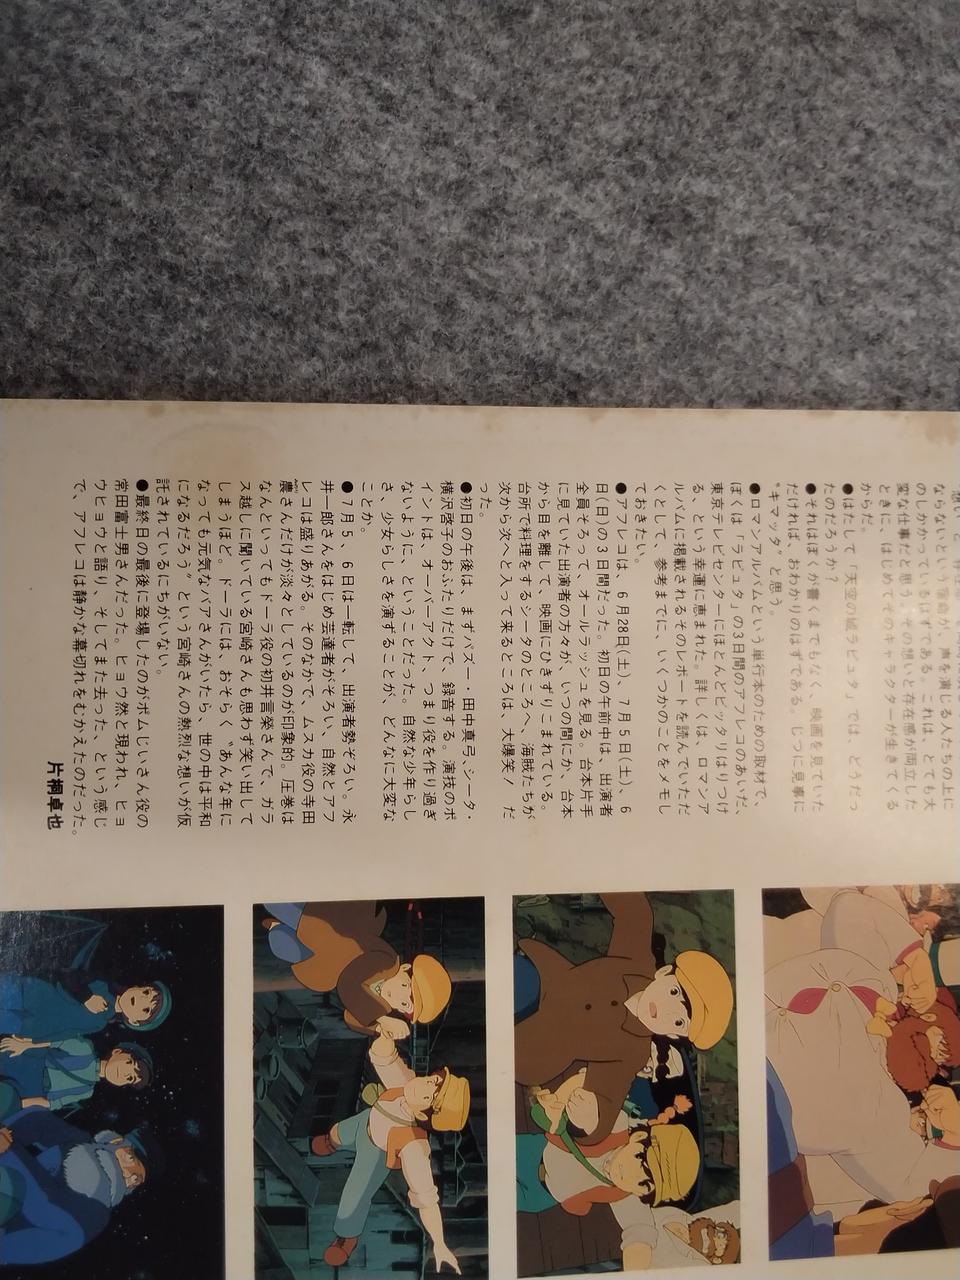 ならないという宿命が、声を演じる人たちの上に
のしかかっているはずである。これは、とても大
変な仕事だと思う。その想いと存在感が両立した
ときに、はじめてそのキャラクターが生きてくる
からだ。
●はたして「天空の城ラピュタ」では、どうだっ
たのだろうか?
●それはぼくが書くまでもなく、映画を見ていた
だければ、おわかりのはずである。じつに見事に
〝キマッタ〟と思う。
●ロマンアルバムという単行本のための取材で、
ぼくは「ラピュタ」の3日間のアフレコのあいだ、
東京テレビセンターにほとんどピッタリはりつけ
る、という幸運に恵まれた。詳しくは、ロマンア
ルバムに掲載されるそのレポートを読んでいただ
くとして、参考までに、いくつかのことをメモし
ておきたい。
●アフレコは、6月28日(土)、7月5日(土)、6
日(日)の3日間だった。初日の午前中は、出演者
全員そろって、オールラッシュを見る。台本片手
に見ていた出演者の方々が、いつの間にか、台本
から目を離して、映画にひきずりこまれている。
台所で料理をするシータのところへ、海賊たちが
次から次へと入って来るところは、大爆笑! だ
った。
●初日の午後は、まずパズー・田中真弓、シータ・
横沢啓子のおふたりだけで、録音する。演技のポ
イントは、オーバーアクト、つまり役を作り過ぎ
ないように、ということだった。自然な少年らし
さ、少女らしさを演ずることが、どんなに大変な
ことか。
●7月5、6日は一転して、出演者勢ぞろい。永
井一郎さんをはじめ芸達者がそろい、自然とアフ
レコは盛りあがる。そのなかで、ムスカ役の寺田
農さんだけが淡々としているのが印象的。圧巻は
なんといってもドーラ役の初井言榮さんで、ガラ
ス越しに聞いている宮崎さんも思わず笑い出して
しまうほど。ドーラには、おそらく〝あんな年に
なっても元気なバアさんがいたら、世の中は平和
になるだろう〟という宮崎さんの熱烈な想いが仮
託されているにちがいない。
●最終日の最後に登場したのがポムじいさん役の
常田富士男さんだった。ヒョウ然と現われ、ヒョ
ウヒョウと語り、そしてまた去った、という感じ
で、アフレコは静かな幕切れをむかえたのだった。
片桐卓也